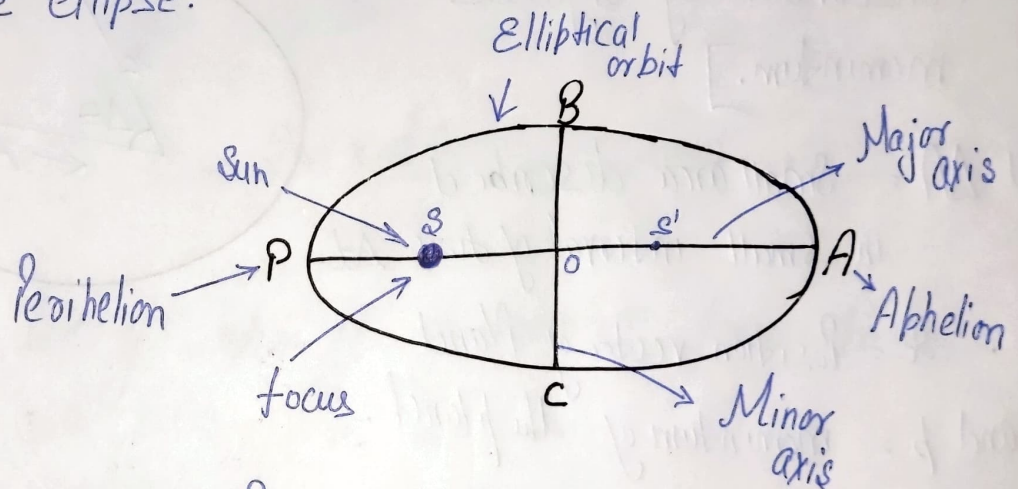 ellipse.
Elliptical
orbit
B
Major
axis
Sun
S
S'
P
O
A
Perihelion
Aphelion
focus
C
Minor
axis